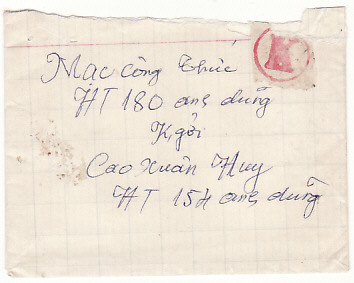 Mạc công thức
HT 180 anh dũng
K, gởi
Cao Xuân Huy
HT 154 anh dũng